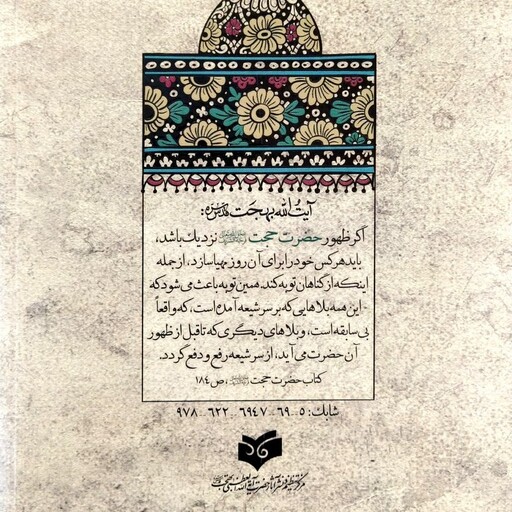 آیت‌الله بهجت قدس‌سره:
اگر ظهور حضرت حجت نزدیک باشد،
باید هر کس خود را برای آن روز مهیا سازد، از جمله
اینکه از گناهان توبه کند. همین توبه باعث می‌شود که
این همه بلاهایی که بر سر شیعه آمده است، که واقعاً
بی‌سابقه است، و بلاهای دیگری که تا قبل از ظهور
آن حضرت می‌آید، از سر شیعه رفع و دفع گردد.
کتاب حضرت حجت، ص ۱۸۴
شابک: ۵-۶۹-۶۹۴۷-۶۲۲-۹۷۸
مرکز تنظیم و نشر آثار حضرت آیة‌الله العظمی بهجت